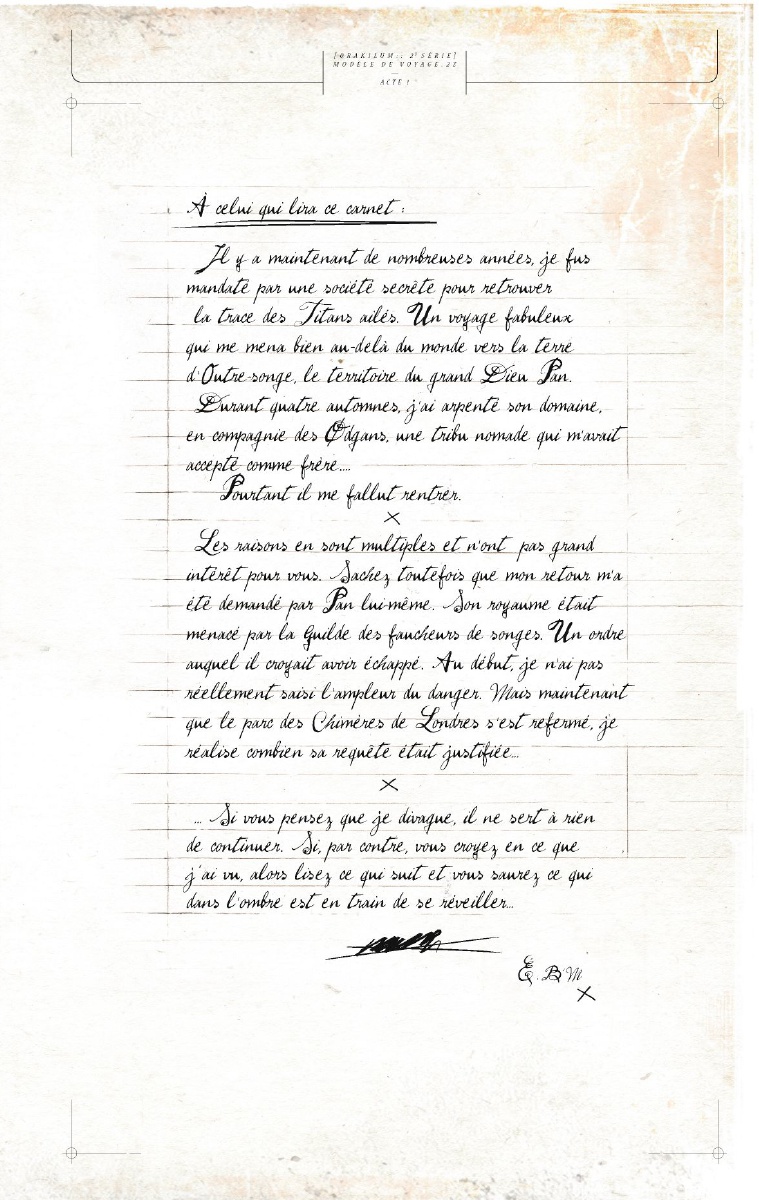 [ORAKILUM : 2e SÉRIE]
MODÈLE DE VOYAGE.28
ACTE 1
À celui qui lira ce carnet :
Il y a maintenant de nombreuses années, je fus
mandaté par une société secrète pour retrouver
la trace des Titans ailés. Un voyage fabuleux
qui me mena bien au-delà du monde vers la terre
d'Outre-songe, le territoire du grand Dieu Pan.
Durant quatre automnes, j'ai arpenté son domaine,
en compagnie des Ødgans, une tribu nomade qui m'avait
accepté comme frère....
Pourtant il me fallut rentrer.
X
Les raisons en sont multiples et n'ont pas grand
intérêt pour vous. Sachez toutefois que mon retour m'a
été demandé par Pan lui-même. Son royaume était
menacé par la Guilde des faucheurs de songes. Un ordre
auquel il croyait avoir échappé. Au début, je n'ai pas
réellement saisi l'ampleur du danger. Mais maintenant
que le parc des Chimères de Londres s'est refermé, je
réalise combien sa requête était justifiée...
X
... Si vous pensez que je divague, il ne sert à rien
de continuer. Si, par contre, vous croyez en ce que
j'ai vu, alors lisez ce qui suit et vous saurez ce qui
dans l'ombre est en train de se réveiller...
E.B.M
X